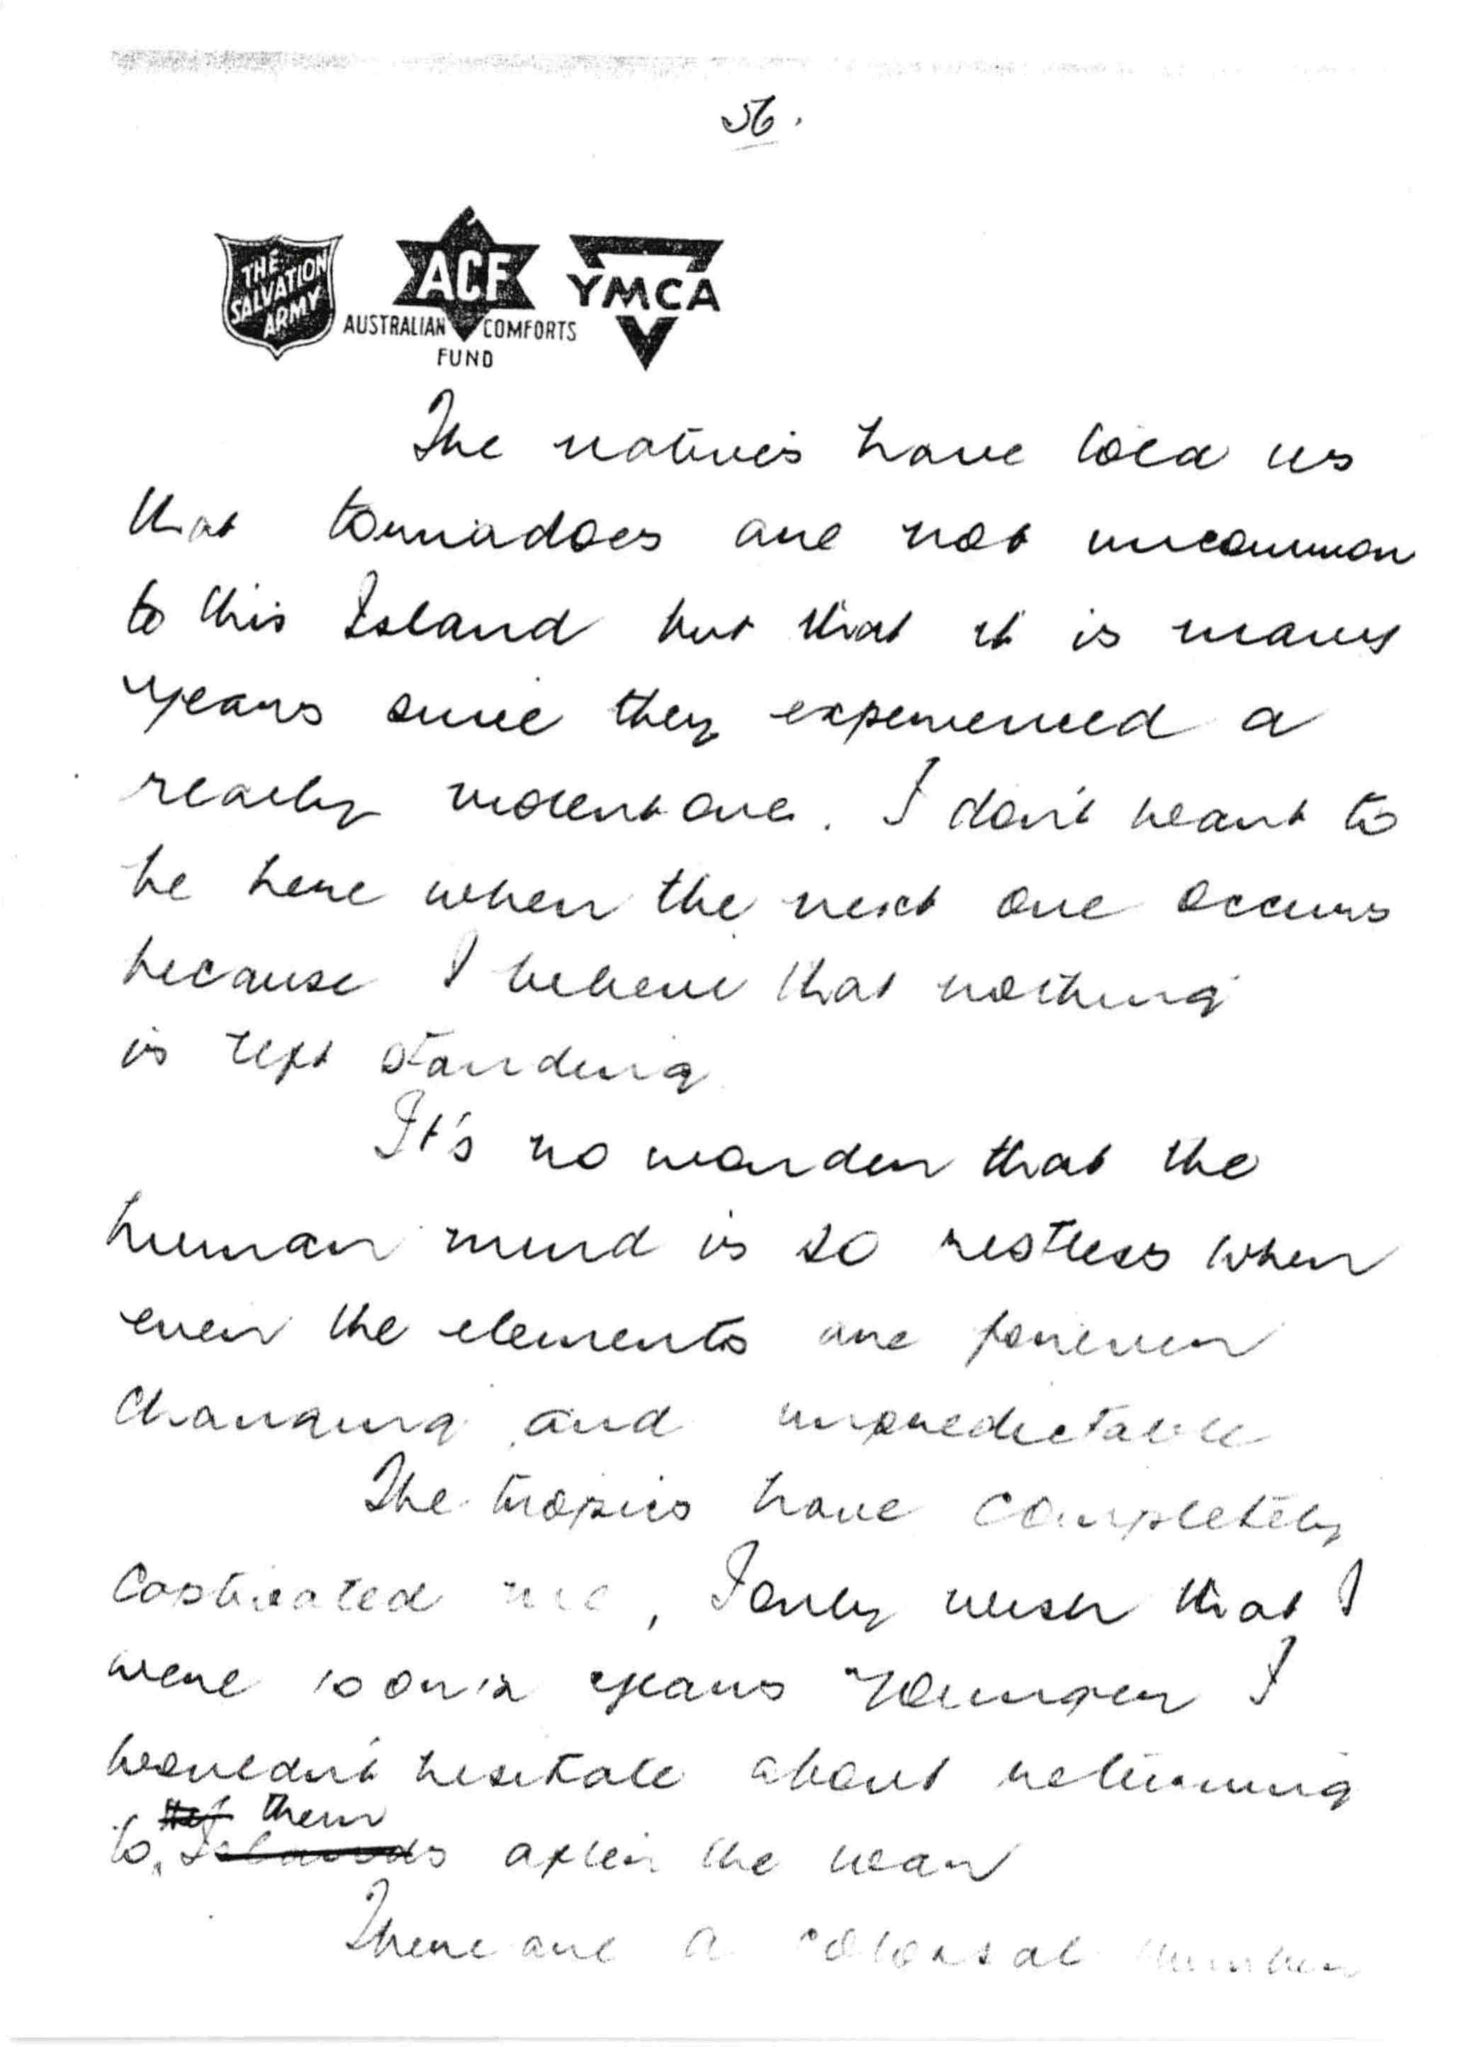 56.
THE SALVATION ARMY
ACF
AUSTRALIAN COMFORTS FUND
YMCA
The natives have told us
that tornadoes are not uncommon
to this Island but that it is many
years since they experienced a
really violent one. I don't want to
be here when the next one occurs
because I believe that nothing
is left standing
It's no wonder that the
human mind is so restless when
even the elements are forever
changing and unpredictable
The tropics have completely
captivated me, I only wish that I
were 10 or 12 years younger I
wouldn't hesitate about returning
to the them Islands after the war
There are a colossal number